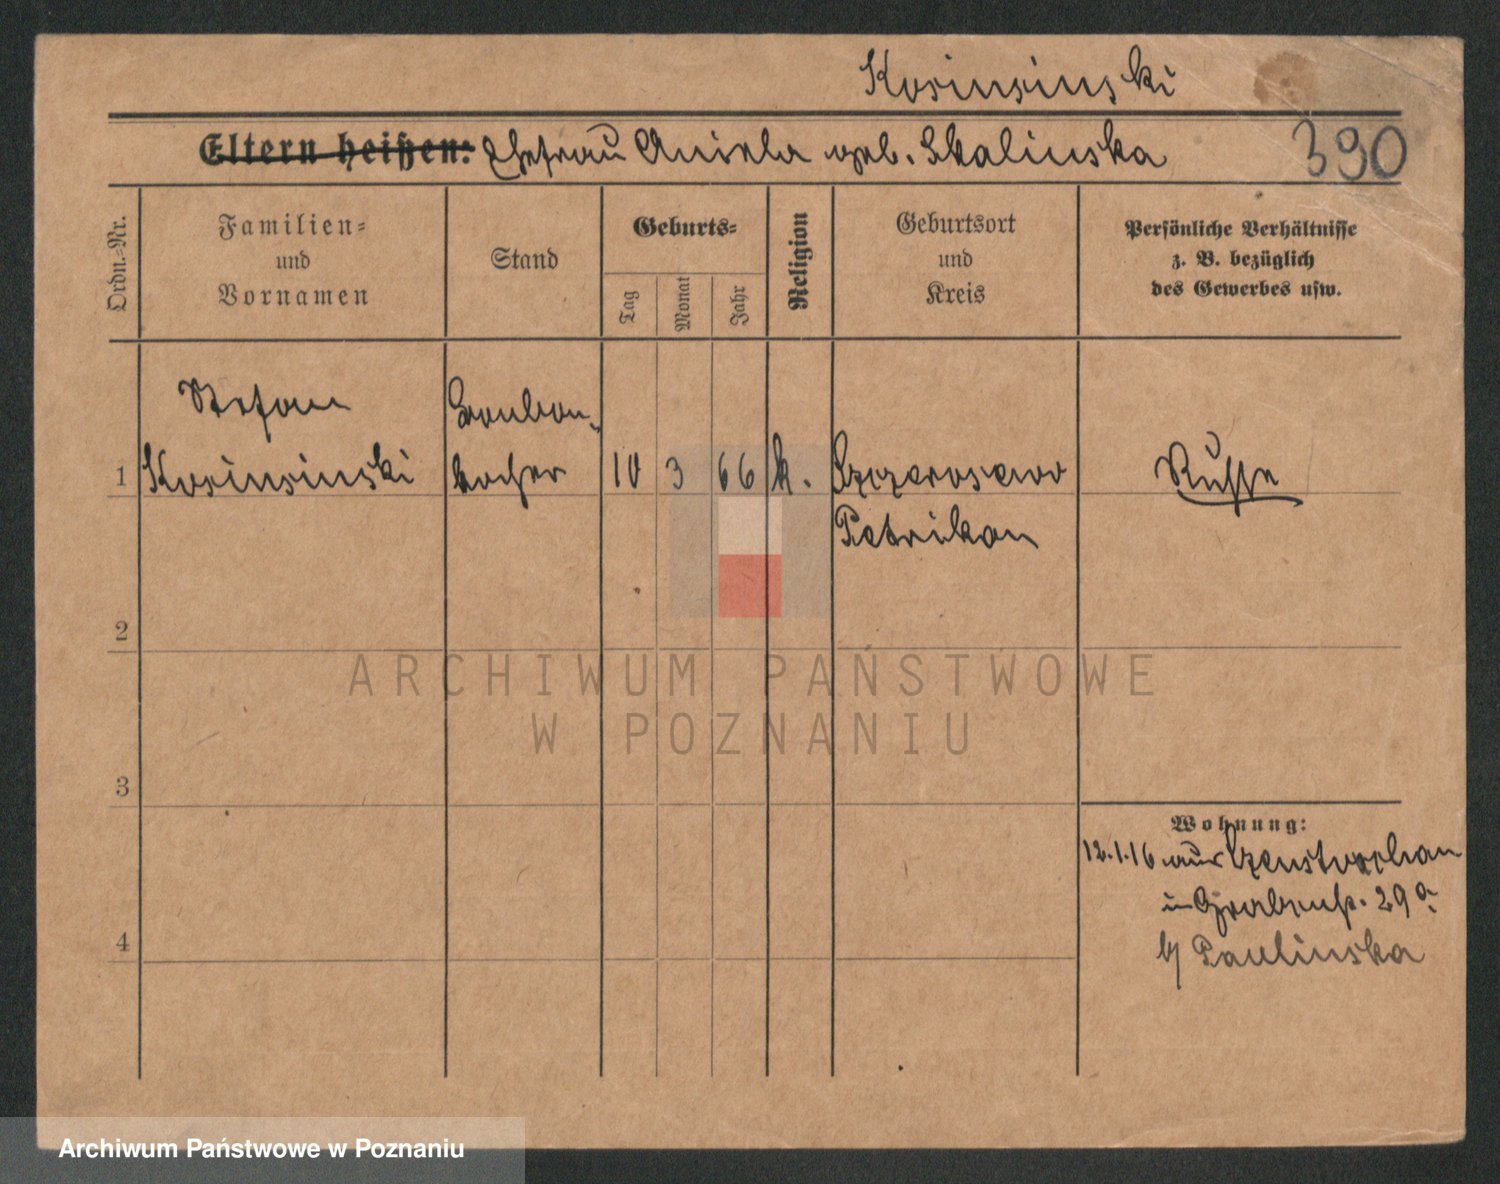 Kosinsinski
Eltern heißen: Ehefrau Aniela geb. Skalinska 390
Ordn.-Nr.
Familien-
und
Vornamen
Stand
Geburts-
Tag
Monat
Jahr
Religion
Geburtsort
und
Kreis
Persönliche Verhältnisse
z. B. bezüglich
des Gewerbes usw.
Stefan
Bonbon-
1 Kosinsinski kocher 10 3 66 k. Russe
Petrikau
2
ARCHIWUM PAŃSTWOWE
W POZNANIU
3
Wohnung:
12.1.16 aus Czenstochau
in Grabenstr. 29a
b/ Paulinska
4
Archiwum Państwowe w Poznaniu